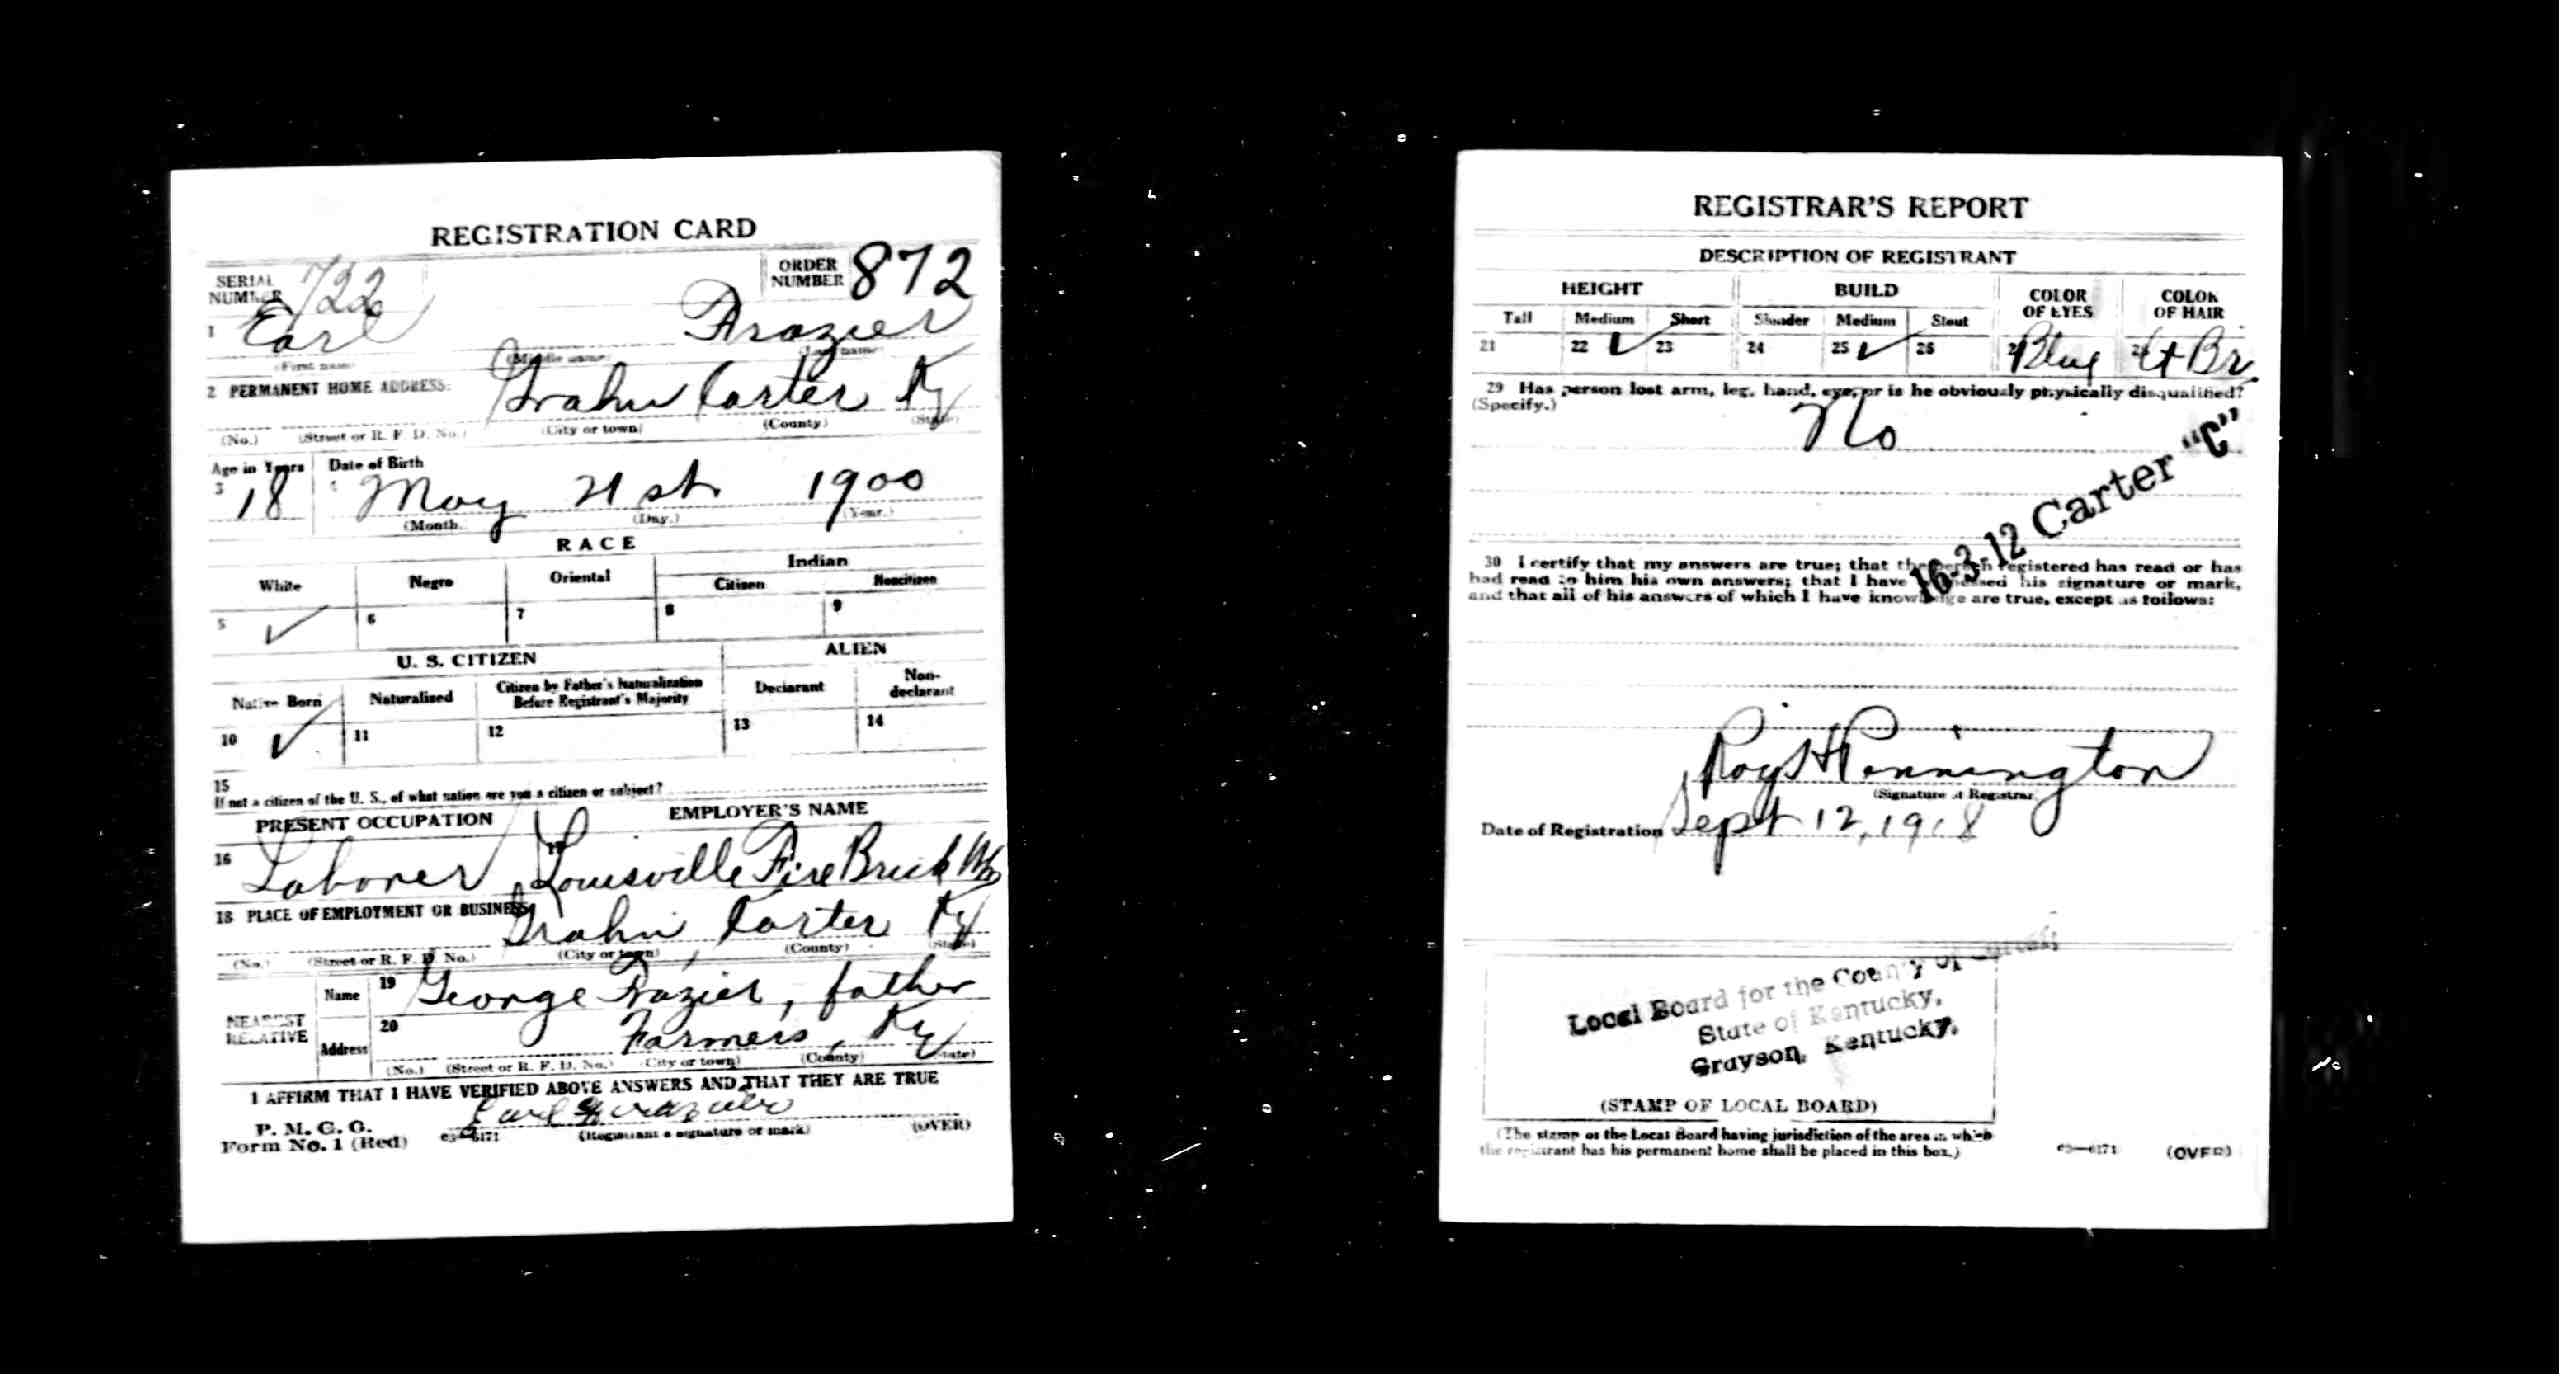 REGISTRATION CARD
SERIAL NUMBER 722
ORDER NUMBER 872
1 Earl Frazier
(First name) (Middle name) (Last name)
2 PERMANENT HOME ADDRESS:
Grahn Carter Ky
(No.) (Street or R. F. D. No.) (City or town) (County) (State)
Age in Years Date of Birth
3 18 4 May 21st 1900
(Month.) (Day.) (Year.)
RACE
White Negro Oriental Indian
Citizen Noncitizen
5 ✓ 6 7 8 9
U. S. CITIZEN ALIEN
Native Born Naturalized Citizen by Father's Naturalization Before Registrant's Majority Declarant Non-declarant
10 ✓ 11 12 13 14
15
If not a citizen of the U. S., of what nation are you a citizen or subject?
PRESENT OCCUPATION EMPLOYER'S NAME
16 Laborer 17 Louisville Fire Brick
18 PLACE OF EMPLOYMENT OR BUSINESS
Grahn, Carter Ky
(No.) (Street or R. F. D. No.) (City or town) (County) (State)
NEAREST RELATIVE
Name 19 George Frazier, father
Address 20 Farmers, Ky
(No.) (Street or R. F. D. No.) (City or town) (County) (State)
I AFFIRM THAT I HAVE VERIFIED ABOVE ANSWERS AND THAT THEY ARE TRUE
P. M. G. O.
Form No. 1 (Red) Earl Frazier
(Registrant's signature or mark) (OVER)
REGISTRAR'S REPORT
DESCRIPTION OF REGISTRANT
HEIGHT BUILD COLOR OF EYES COLOR OF HAIR
Tall Medium Short Slender Medium Stout
21 22 ✓ 23 24 25 ✓ 26 Blue Lt Br
29 Has person lost arm, leg, hand, eye, or is he obviously physically disqualified?
(Specify.)
No
16-3-12 Carter "C"
30 I certify that my answers are true; that the person registered has read or has
had read to him his own answers; that I have witnessed his signature or mark,
and that all of his answers of which I have knowledge are true, except as follows:
Roy H Pennington
(Signature of Registrar)
Date of Registration Sept 12, 1918
Local Board for the County of Carter,
State of Kentucky,
Grayson, Kentucky,
(STAMP OF LOCAL BOARD)
(The stamp of the Local Board having jurisdiction of the area in which
the registrant has his permanent home shall be placed in this box.)
03—6171 (OVER)